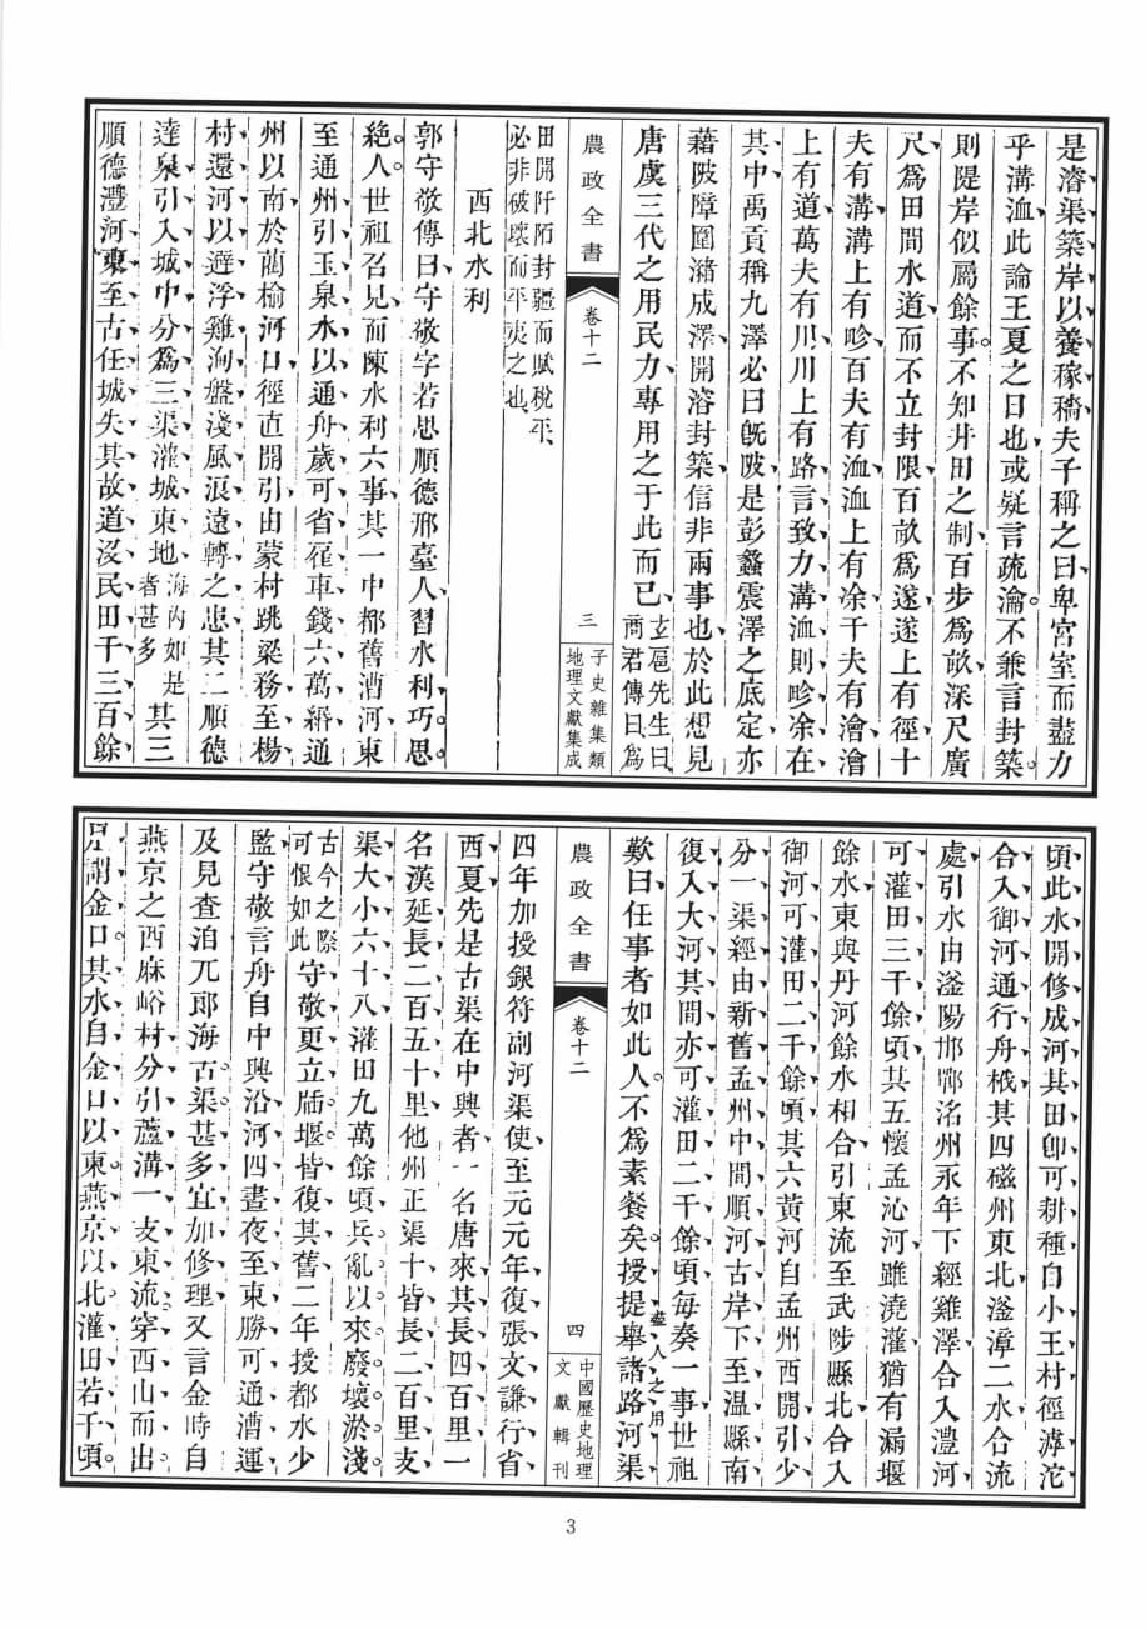 是濬渠築岸以養稼穡夫子稱之曰卑宮室而盡力
乎溝洫此論王夏之日也或疑言疏瀹不兼言封築
則隄岸似屬餘事不知井田之制百步爲畝深尺廣
尺爲田間水道而不立封限百畝爲遂遂上有徑十
夫有溝溝上有畛百夫有洫洫上有凃千夫有澮澮
上有道萬夫有川川上有路言致力溝洫則畛凃在
其中禹貢稱九澤必曰旣陂是彭蠡震澤之底定亦
藉陂障圍瀦成澤開溶封築信非兩事也於此想見
唐虞三代之用民力專用之于此而已玄扈先生曰
商君傳曰爲
農政全書
卷十二
三
子史雜集類
地理文獻集成
田開阡陌封疆而賦稅平
必非破壞而平夷之也
西北水利
郭守敬傳曰守敬字若思順德邢臺人習水利巧思
絶人世祖召見而陳水利六事其一中都舊漕河東
至通州引玉泉水以通舟歲可省雇車錢六萬緡通
州以南於藺榆河口徑直開引由蒙村跳梁務至楊
村還河以避浮雞洵盤淺風浪遠轉之患其二順德
達泉引入城中分爲三渠灌城東地海內如是
者甚多其三
順德灃河東至古任城失其故道沒民田千三百餘
頃此水開修成河其田卽可耕種自小王村徑滹沱
合入御河通行舟栰其四磁州東北滏漳二水合流
處引水由滏陽邯鄲洺州永年下經雞澤合入灃河
可灌田三千餘頃其五懷孟沁河雖澆灌猶有漏堰
餘水東與丹河餘水相合引東流至武陟縣北合入
御河可灌田二千餘頃其六黃河自孟州西開引少
分一渠經由新舊孟州中間順河古岸下至溫縣南
復入大河其間亦可灌田二千餘頃每奏一事世祖
歎曰任事者如此人不爲素餐矣授提舉諸路河渠
人之用
農政全書
卷十二
四
中國歷史地理
文獻輯刊
四年加授銀符副河渠使至元元年復張文謙行省
西夏先是古渠在中興者一名唐來其長四百里一
名漢延長二百五十里他州正渠十皆長二百里支
渠大小六十八灌田九萬餘頃兵亂以來廢壞淤淺
古今之際
可恨如此守敬更立牐堰皆復其舊二年授都水少
監守敬言舟自中興沿河四晝夜至東勝可通漕運
及見查泊兀郎海古渠甚多宜加修理又言金時自
燕京之西麻峪村分引蘆溝一支東流穿西山而出
是謂金口其水自金口以東燕京以北灌田若千頃
3